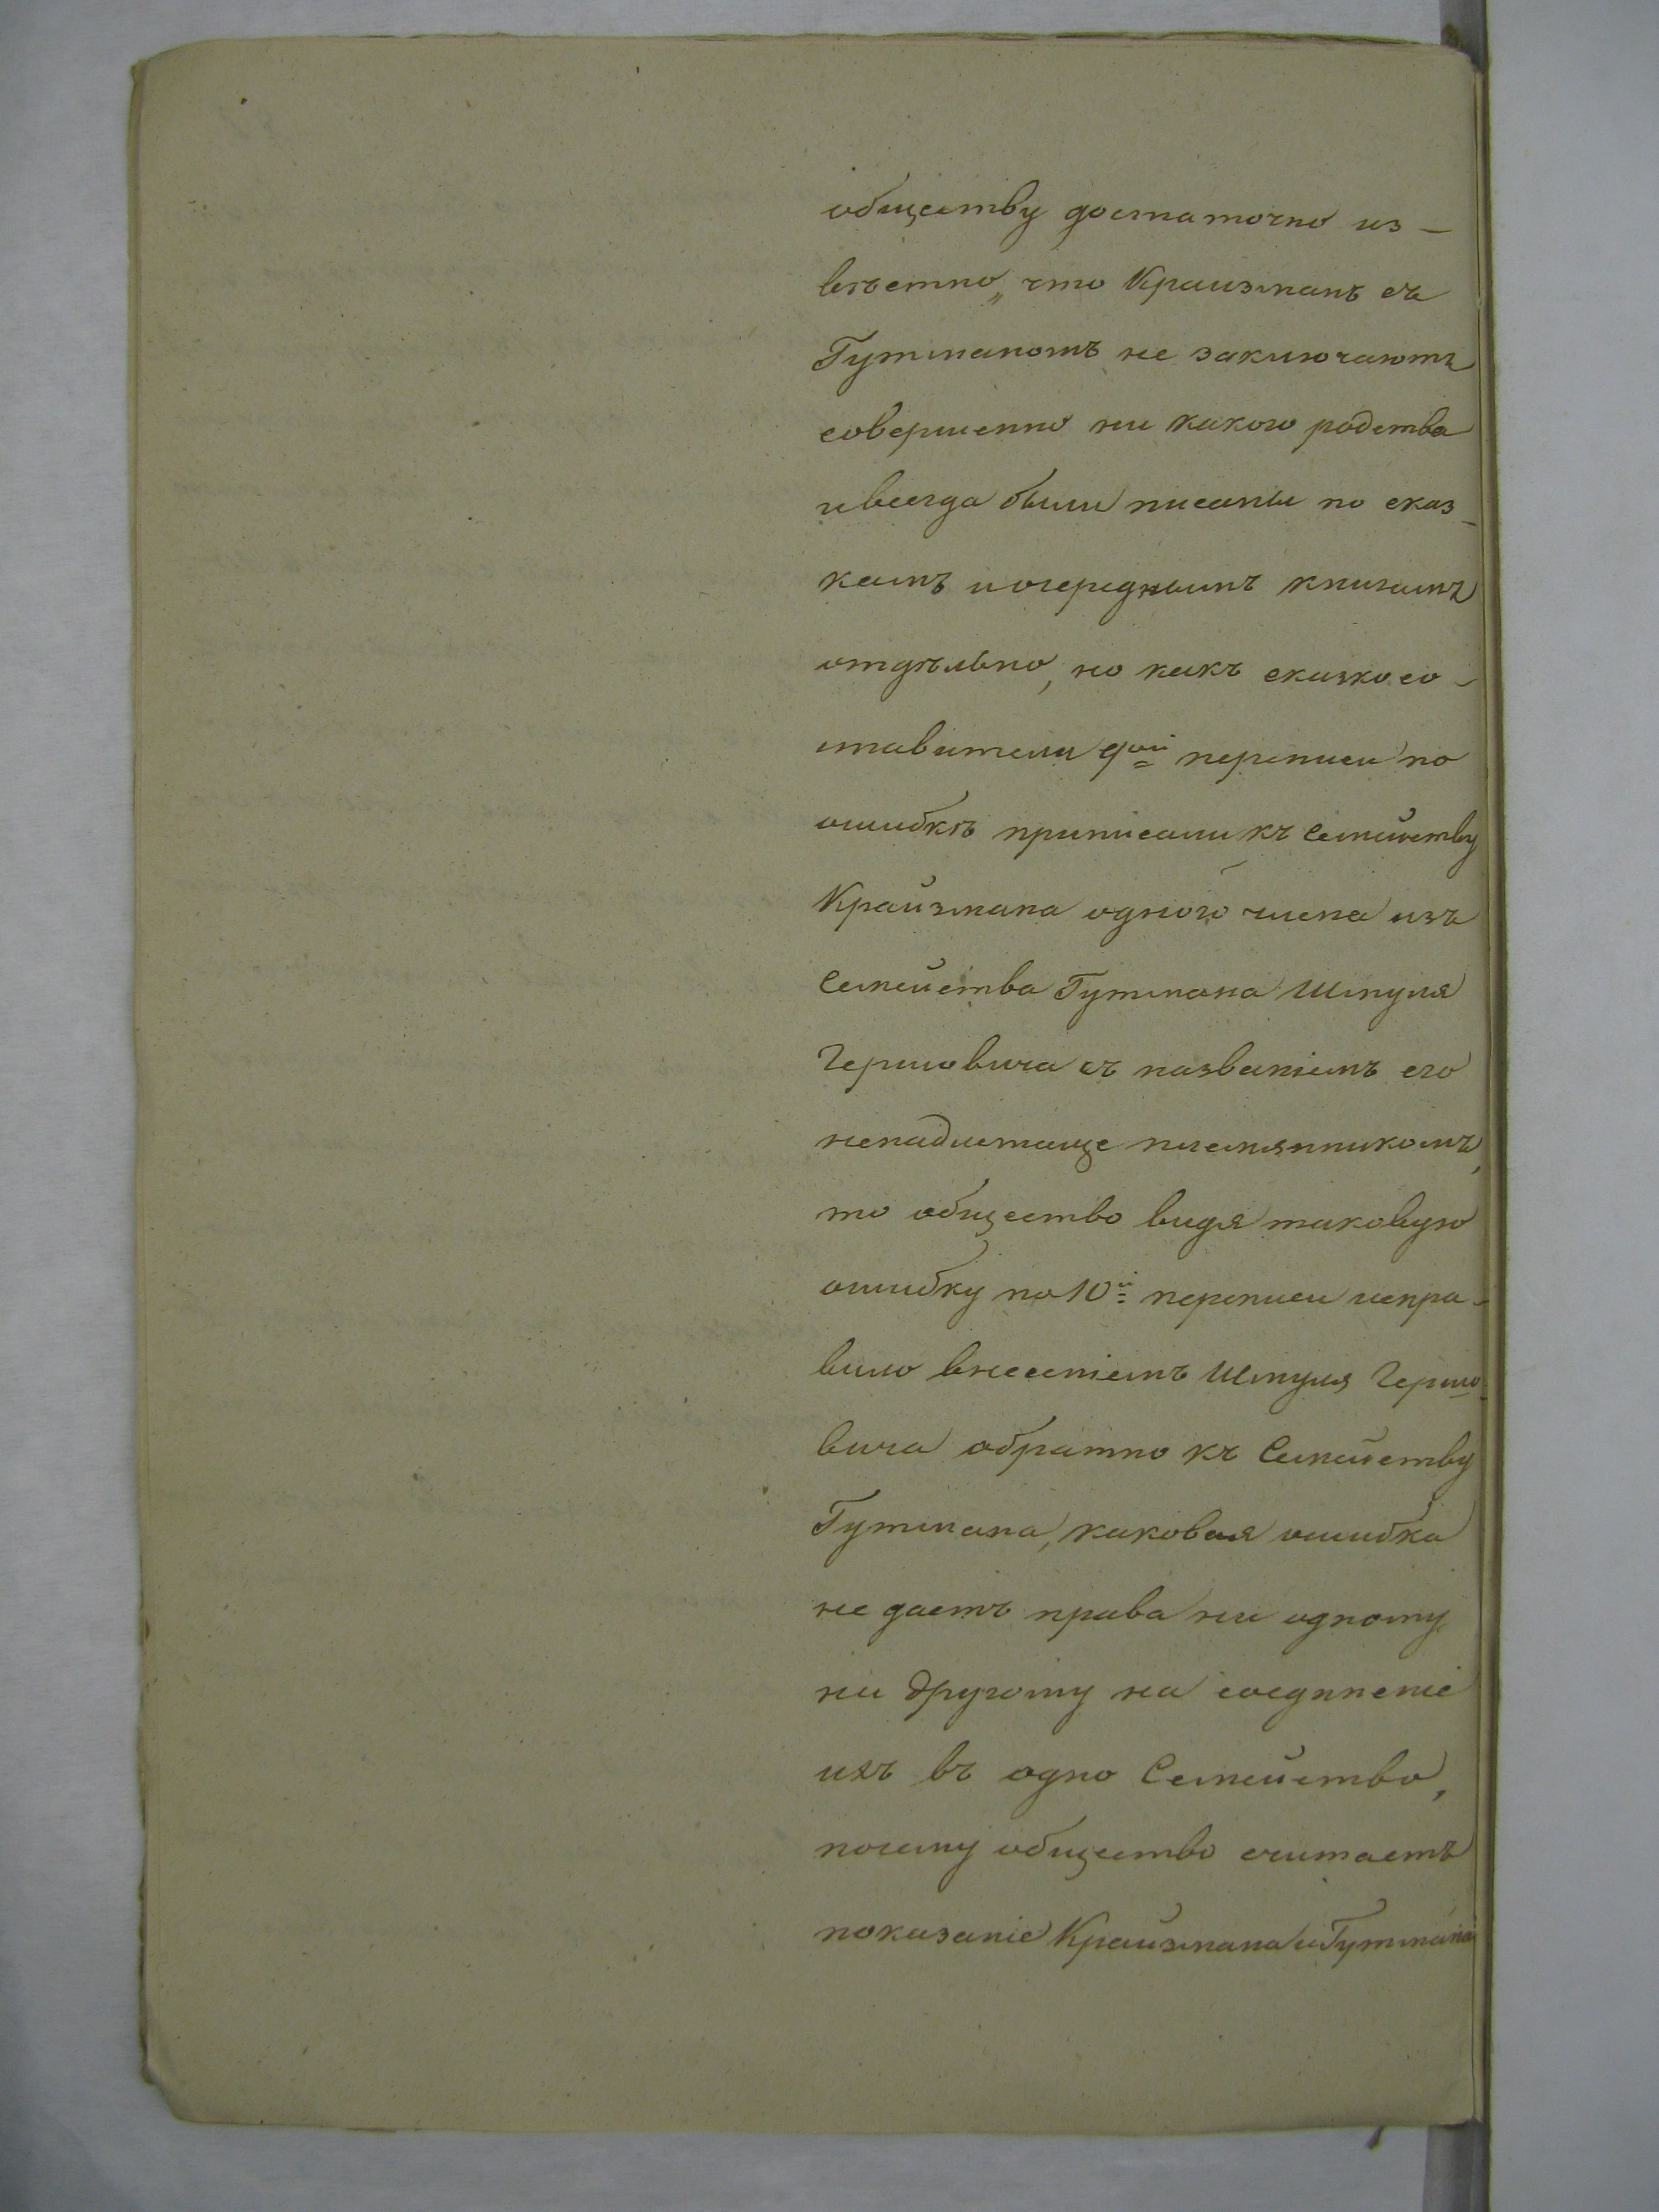 обществу достаточно из-
вѣстно, что Краизманъ съ
Гутманомъ не заключаютъ
совершенно ни какого родства
и всегда были писаны по сказ-
камъ и очереднымъ книгамъ
отдѣльно, но какъ сказкосо-
ставители 9ой переписи по
ошибкѣ приписали къ Семейству
Крайзмана одного члена изъ
Семейства Гутмана Шмуля
Гершовича съ названіемъ его
ненадлежаще племянникомъ,
то общество видя таковую
ошибку по 10й переписи испра-
вило внесеніемъ Шмуля Гершо-
вича обратно къ Семейству
Гутмана, каковая ошибка
не даетъ права ни одному
ни другому на соединеніе
ихъ въ одно Семейство,
почему общество считаетъ
показаніе Крайзмана и Гутмана